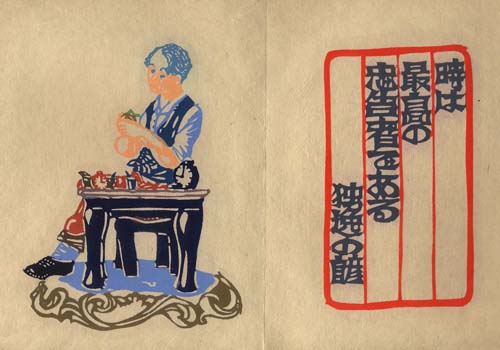 時は
最高の
忠告者である
独逸の諺